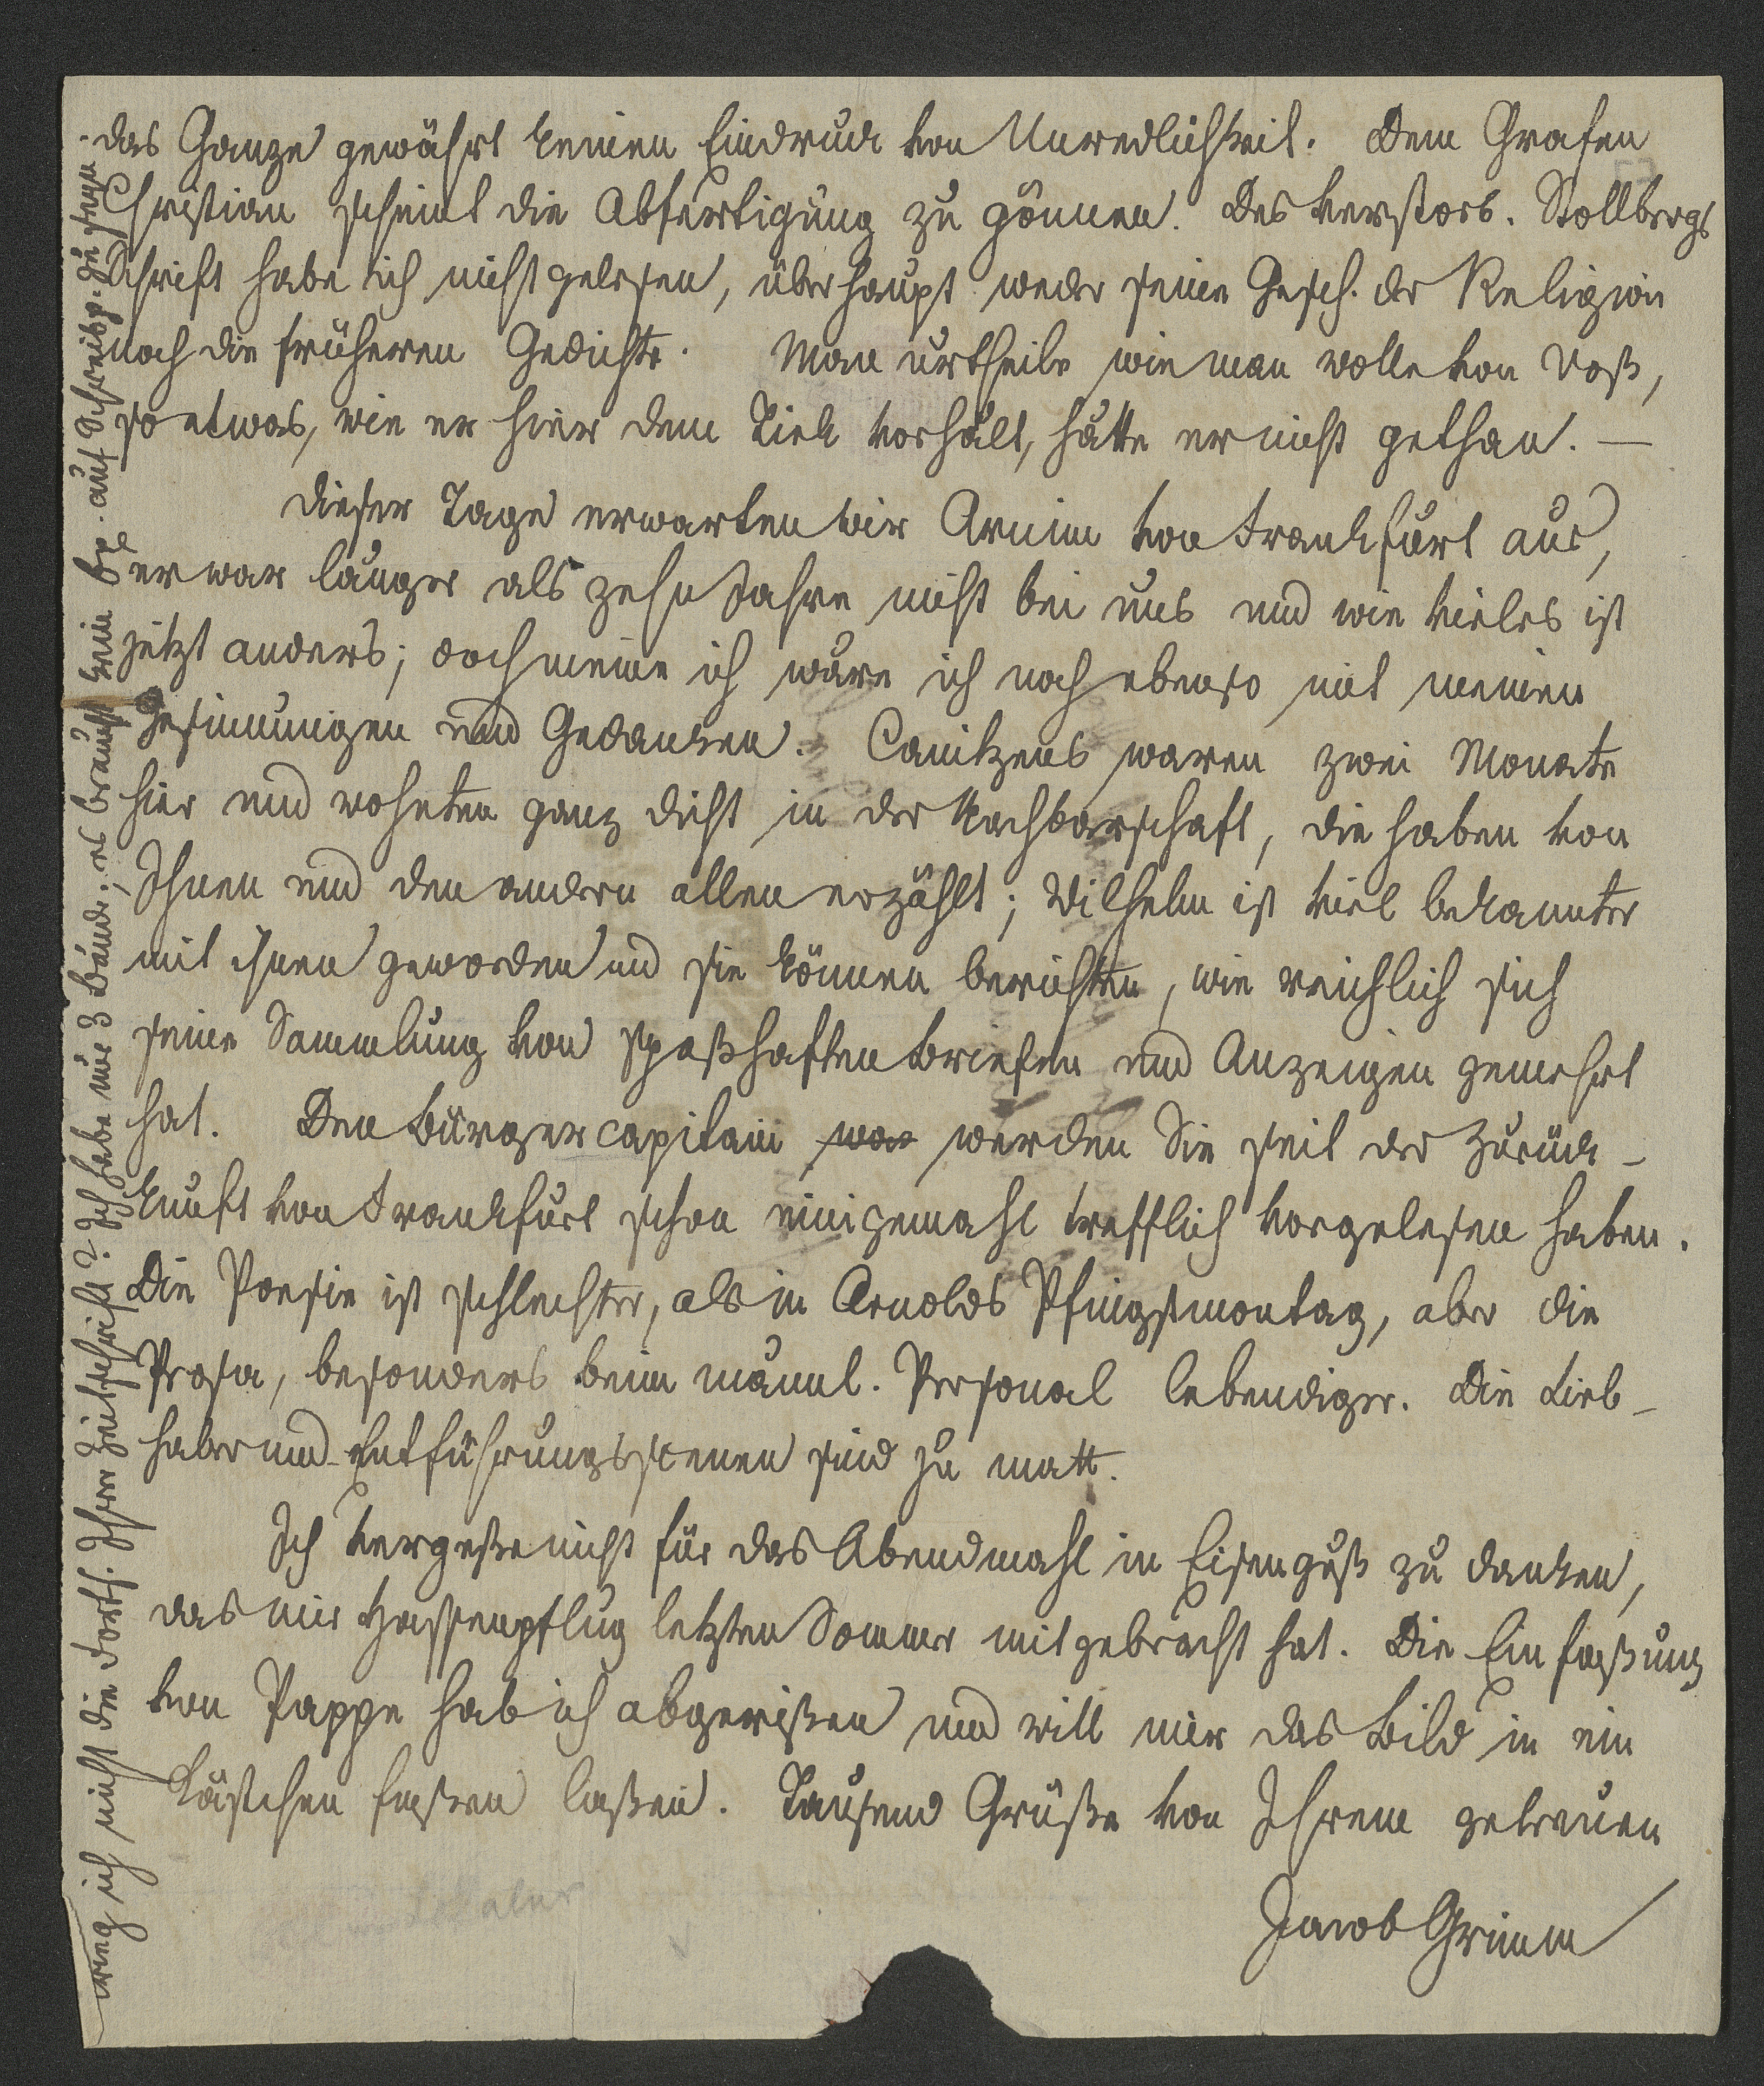 das Ganze gewährt keinen Eindruck von Unredlichkeit. Dem Grafen
Christian scheint die Abfertigung zu gönnen. Des verstorb. Stollbergs
Schrift habe ich nicht gelesen, überhaupt weder seine Gesch. der Religion
noch die früheren Gedichte. Man urtheile wie man wolle von Voß,
so etwas, wie er hier dem Tiek vorhält, hätte er nicht gethan. —
Dieser Tage erwarten wir Arnim von Frankfurt aus,
er war länger als zehn Jahre nicht bei uns und wie vieles ist
jetzt anders; doch meine ich wäre ich noch ebenso mit meinen
Gesinnungen und Gedanken. Canitzens waren zwei Monate
hier und wohnten ganz dicht in der Nachbarschaft, die haben von
Ihnen und den andern allen erzählt; Wilhelm ist viel bekannter
mit ihnen geworden und sie können berichten, wie reichlich sich
seine Sammlung von spaßhaften Briefen und Anzeigen gemehrt
hat. Den Bürgercapitain wa werden Sie seit der Zurück-
kunft von Frankfurt schon einigemahl trefflich vorgelesen haben.
Die Poesie ist schlechter, als in Arnolds Pfingstmontag, aber die
Prosa, besonders beim männl. Personal lebendiger. Die Lieb-
haber und Entführungsscenen sind zu matt.
Ich vergeße nicht für das Abendmahl in Eisenguß zu danken,
das mir Hassenpflug letzten Sommer mitgebracht hat. Die Einfaßung
von Pappe hab ich abgerißen und will mir das Bild in ein
Kästchen faßen laßen. Tausend Grüße von Ihrem getreuen
Jacob Grimm
ich nicht die Forts. Ihrer Zeitschrift? Ich habe nur 3 Bände; es braucht kein auf Schreibp. zu seyn.